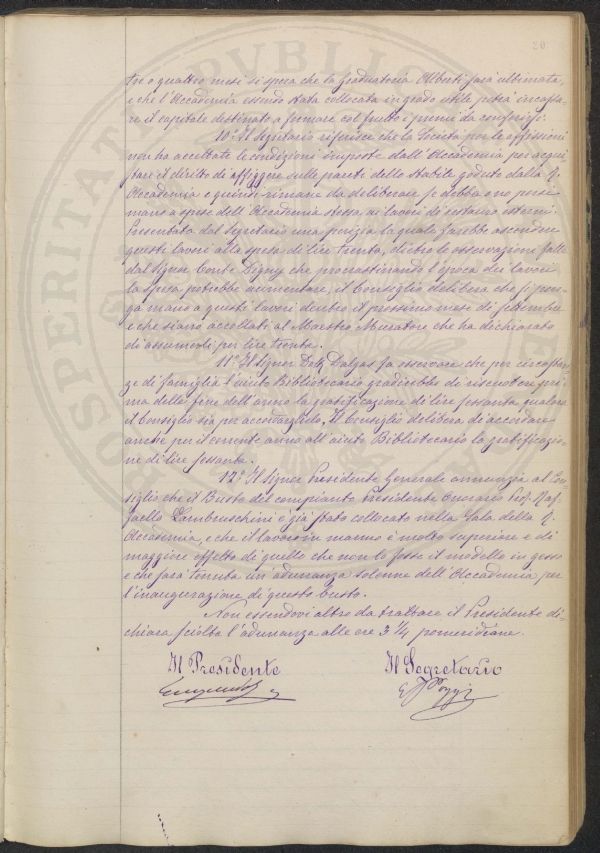 20
tre o quattro mesi si spera che la graduatoria Alberti sarà ultimata,
e che l'Accademia essendo stata collocata in grado utile potrà incassa-
re il capitale destinato a formare col frutto i premi da conferirsi.
10° Il Segretario riferisce che la Società per le affissioni
non ha accettate le condizioni imposte dall'Accademia per acqui-
stare il diritto di affiggere sulle pareti dello Stabile goduto dalla R.
Accademia e quindi rimane da deliberare se debba o no porsi
mano a spese dell'Accademia stessa ai lavori di restauro esterni.
Presentata dal Segretario una perizia la quale farebbe ascendere
questi lavori alla spesa di lire trenta, dietro le osservazioni fatte
dal Signor Conte Digny che procrastinando l'epoca dei lavori
la spesa potrebbe aumentare, il Consiglio delibera che si pon-
ga mano a questi lavori dentro il prossimo mese di settembre
e che siano accollati al Maestro Muratore che ha dichiarato
di assumerli per lire trenta.
11° Il Signor Dalgas fa osservare che per circostan-
ze di famiglia l'aiuto Bibliotecario gradirebbe di riscuotere pri-
ma della fine dell'anno la gratificazione di lire sessanta qualora
il Consiglio sia per accordargliela, Il Consiglio delibera di accordare
anche per il corrente anno all'aiuto Bibliotecario la gratificazio-
ne di lire sessanta.
12° Il Signor Presidente Generale annunzia al Con-
siglio che il Busto del compianto Presidente Onorario Prof. Raf-
faello Lambruschini è già stato collocato nella Sala della R.
Accademia, e che il lavoro in marmo è molto superiore e di
maggiore effetto di quello che non lo fosse il modello in gesso
e che sarà tenuta un'adunanza solenne dell'Accademia per
l'inaugurazione di questo busto.
Non essendovi altro da trattare il Presidente di-
chiara sciolta l'adunanza alle ore 3 1/4 pomeridiane.
Il Presidente
Il Segretario
E Poggi
PROSPERITATI PVBLICAE